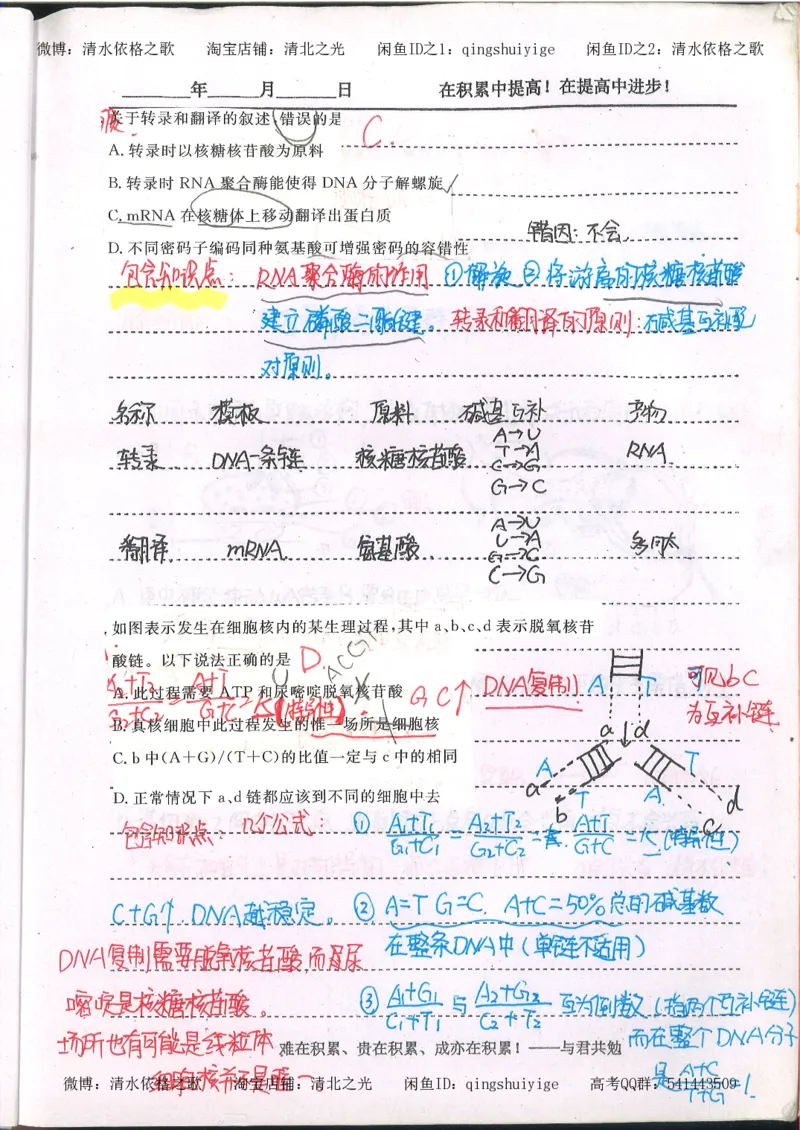 微博：清水依格之歌 淘宝店铺：清北之光 闲鱼ID之1：qingshuiyige 闲鱼ID之2：清水依格之歌
年 月 日 在积累中提高！在提高中进步！
关于转录和翻译的叙述,错误的是 C.
A.转录时以核糖核苷酸为原料
B.转录时 RNA 聚合酶能使得 DNA 分子解螺旋√
C.mRNA 在核糖体上移动翻译出蛋白质
错因：不会.
D.不同密码子编码同种氨基酸可增强密码的容错性
包含知识点： RNA聚合酶的作用 ①解旋 ②将游离的核糖核苷酸
建立磷酸二酯键。转录和翻译的原则：碱基互补配
对原则。
名称 模板 原料 碱基互补 产物
A→U
转录 DNA一条链 核糖核苷酸 T→A RNA
C→G
G→C
A→U
翻译 mRNA 氨基酸 U→A 多肽
G→C
C→G
如图表示发生在细胞核内的某生理过程,其中 a、b、c、d 表示脱氧核苷
酸链。以下说法正确的是 D. ACGT
A.此过程需要 ATP 和尿嘧啶脱氧核苷酸 GC↑ DNA复制 A T 可见bc
为互补链
A+T
G+C =K(特异性)
B.真核细胞中此过程发生的惟一场所是细胞核
a d
C.b 中(A+G)/(T+C)的比值一定与 c 中的相同
A T
D.正常情况下 a、d 链都应该到不同的细胞中去
a b T A c d
包含知识点：几个公式. ① A₁+T₁/G₁+C₁ = A₂+T₂/G₂+C₂ = A+T/G+C = K (特异性)
C+G↑. DNA越稳定。 ② A=T G=C. A+C=50%总的碱基数
在整条DNA中（单链不适用）
DNA复制需要脱氧核苷酸,而尿
嘧啶是核糖核苷酸。 ③ A₁+G₁/C₁+T₁ 与 A₂+G₂/C₂+T₂ 互为倒数（指两个互补链）
场所也有可能是线粒体 而在整个DNA分子
难在积累、贵在积累、成亦在积累！——与君共勉
是 A+C/T+G =1.
细胞核not不是唯一
微博：清水依格之歌 淘宝店铺：清北之光 闲鱼ID：qingshuiyige 高考QQ群：541443509